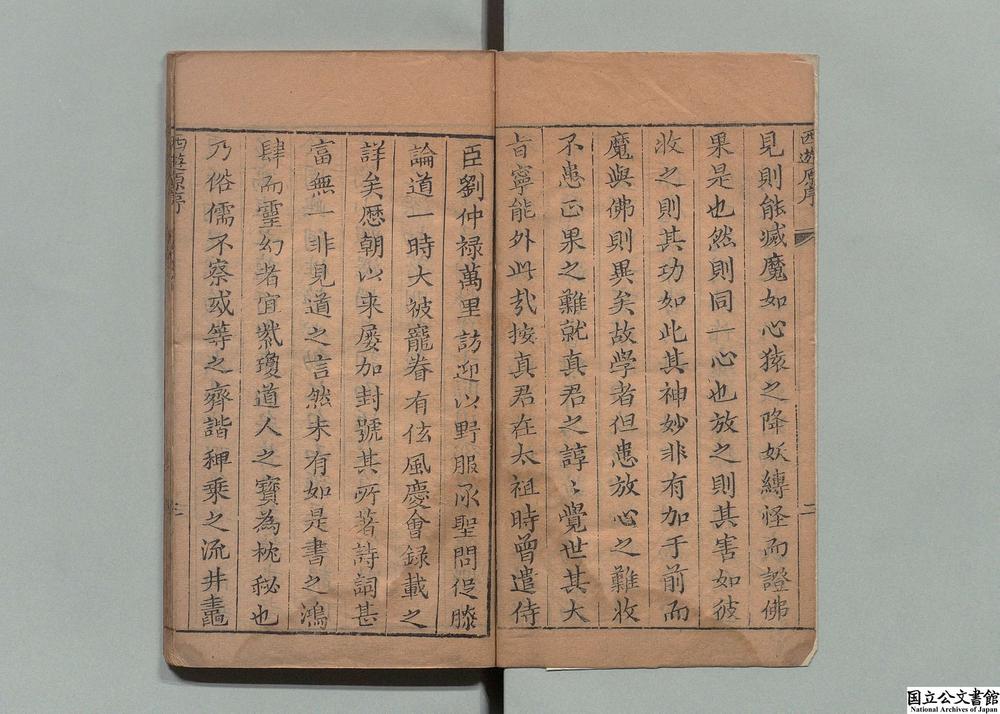 西遊原序
二
見則能滅魔如心猿之降妖縛怪而證佛
果是也然則同一心也放之則其害如彼
收之則其功如此其神妙非有加于前而
魔與佛則異矣故學者但患放心之難收
不患正果之難就真君之諄〻覺世其大
旨寧能外此㦲按真君在太祖時曾遣侍
臣劉仲禄萬里訪迎以野服承聖問促膝
論道一時大被寵眷有佐風慶會録載之
詳矣歷朝以来屡加封號其所著詩詞甚
富無一非見道之言然未有如是書之鴻
肆而靈幻者宜紫瓊道人之寶為枕秘也
乃俗儒不察或等之齊諧稗乘之流井蠡
西遊原序
国立公文書館
National Archives of Japan